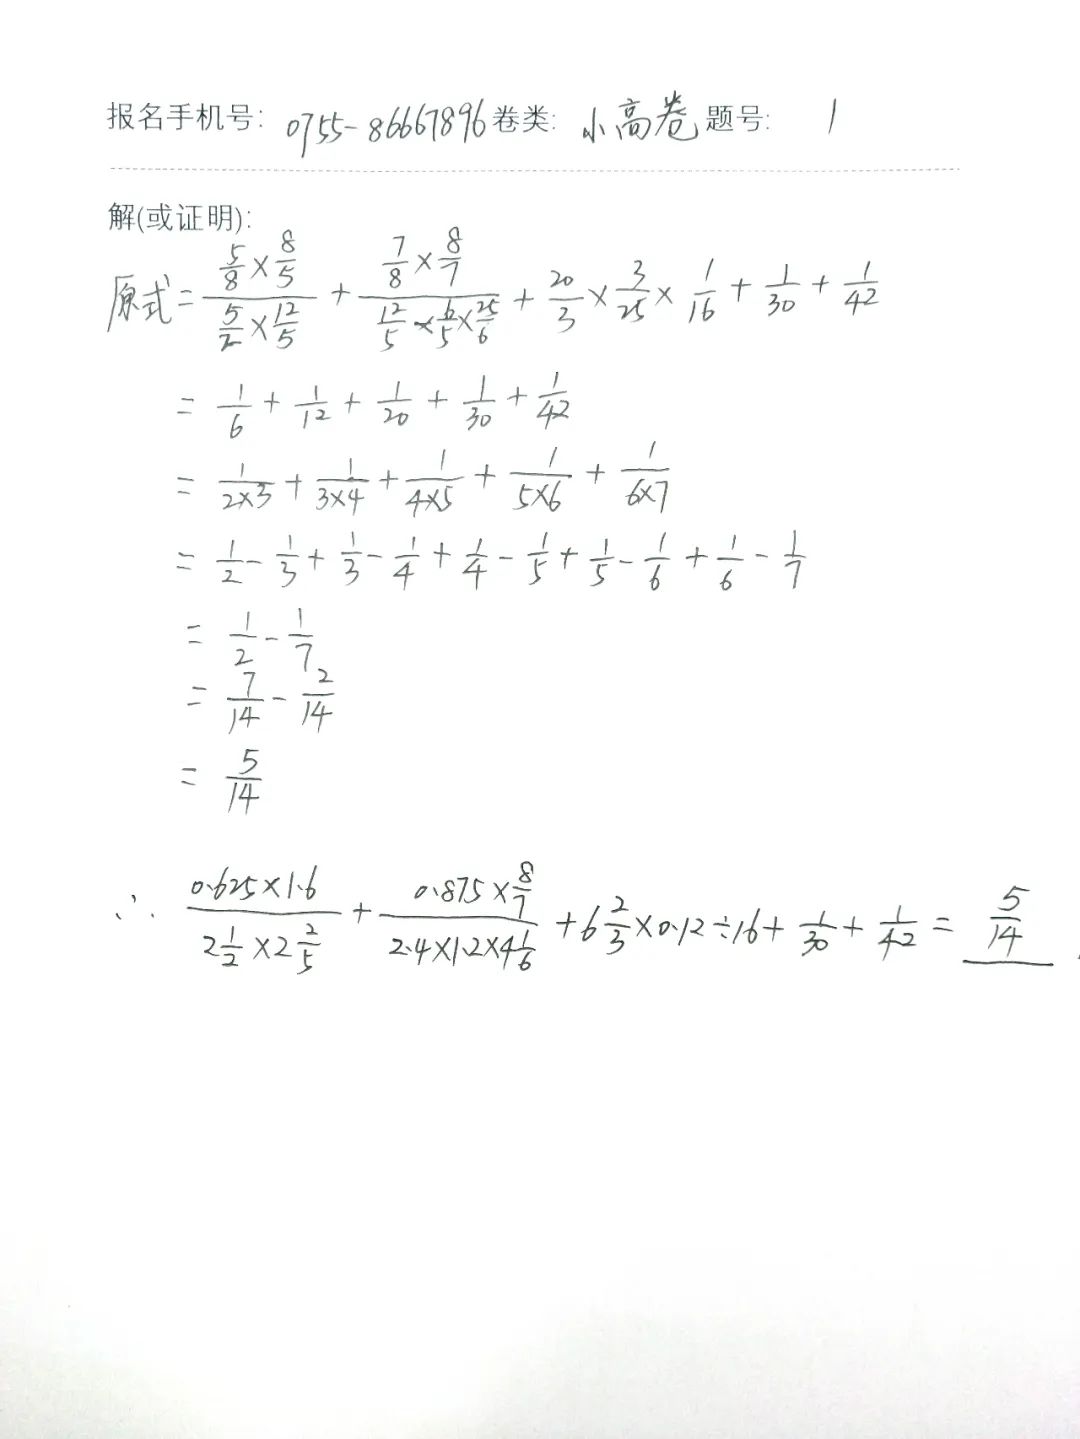 报名手机号: 0755-86667896 卷类: 小高卷 题号: 1
解(或证明):
原式 = (5/8 × 8/5)/(5/2 × 12/5) + (7/8 × 8/7)/(12/5 × 6/5 × 25/6) + 20/3 × 3/25 × 1/16 + 1/30 + 1/42
= 1/6 + 1/12 + 1/20 + 1/30 + 1/42
= 1/(2×3) + 1/(3×4) + 1/(4×5) + 1/(5×6) + 1/(6×7)
= 1/2 - 1/3 + 1/3 - 1/4 + 1/4 - 1/5 + 1/5 - 1/6 + 1/6 - 1/7
= 1/2 - 1/7
= 7/14 - 2/14
= 5/14
∴ (0.625×1.6)/(2 1/2 × 2 2/5) + (0.875 × 8/7)/(2.4×1.2×4 1/6) + 6 2/3 × 0.12 ÷ 16 + 1/30 + 1/42 = 5/14 .